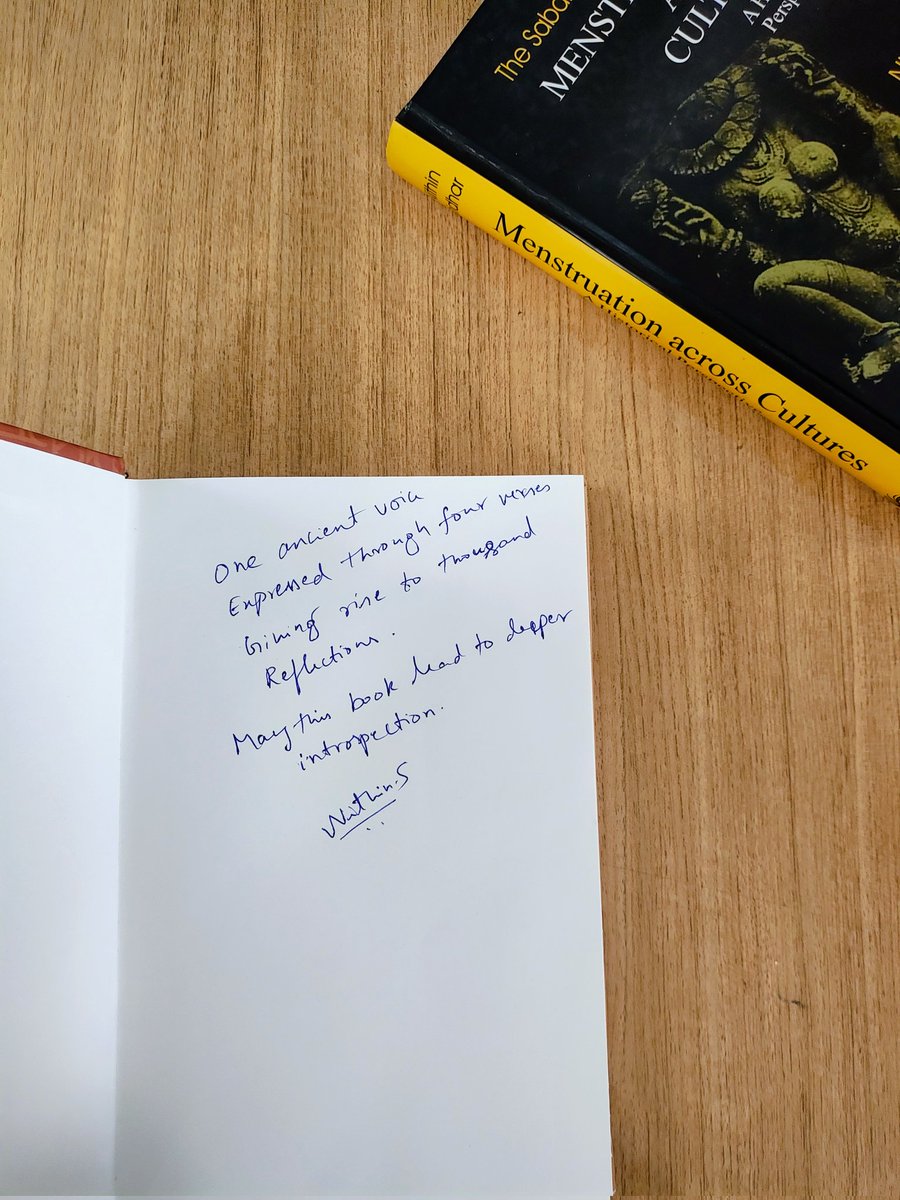 The Sabar
MENST
A
CULT
A H
Persp
Menstruation across Cultures
One ancient voice
Expressed through four verses
Giving rise to thousand
Reflections.
May this book lead to deeper
introspection.
Nithin.S